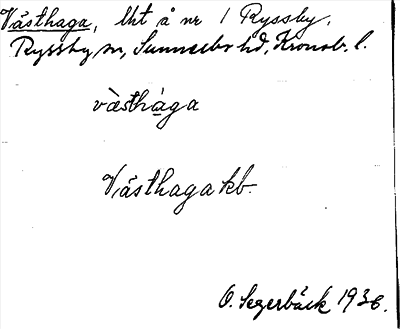 Västhaga, lht å nr 1 Ryssby,
Ryssby sn, Sunnerbo hd, Kronob. l.
vàsthàga
Västhaga kb.
O. Segerbäck 1936.